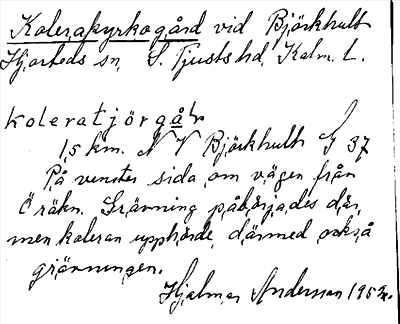 Kolerakyrkogård vid Björkhult
Hjorteds sn, S. Tjusts hd, Kalm. L.
koleratjörgår
1,5 km. N V Björkhult G 37
På venster sida om vägen från
Ö räkn. Grävning påbörjades där,
men koleran upphörde, därmed också
grävningen.
Hjalmar Andersson 1952.